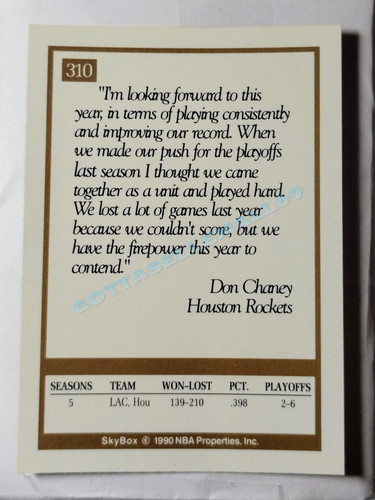 310
"I'm looking forward to this
year, in terms of playing consistently
and improving our record. When
we made our push for the playoffs
last season I thought we came
together as a unit and played hard.
We lost a lot of games last year
because we couldn't score, but we
have the firepower this year to
contend."
Don Chaney
Houston Rockets
SEASONS TEAM WON-LOST PCT. PLAYOFFS
5 LAC, Hou 139-210 .398 2-6
SkyBox © 1990 NBA Properties, Inc.